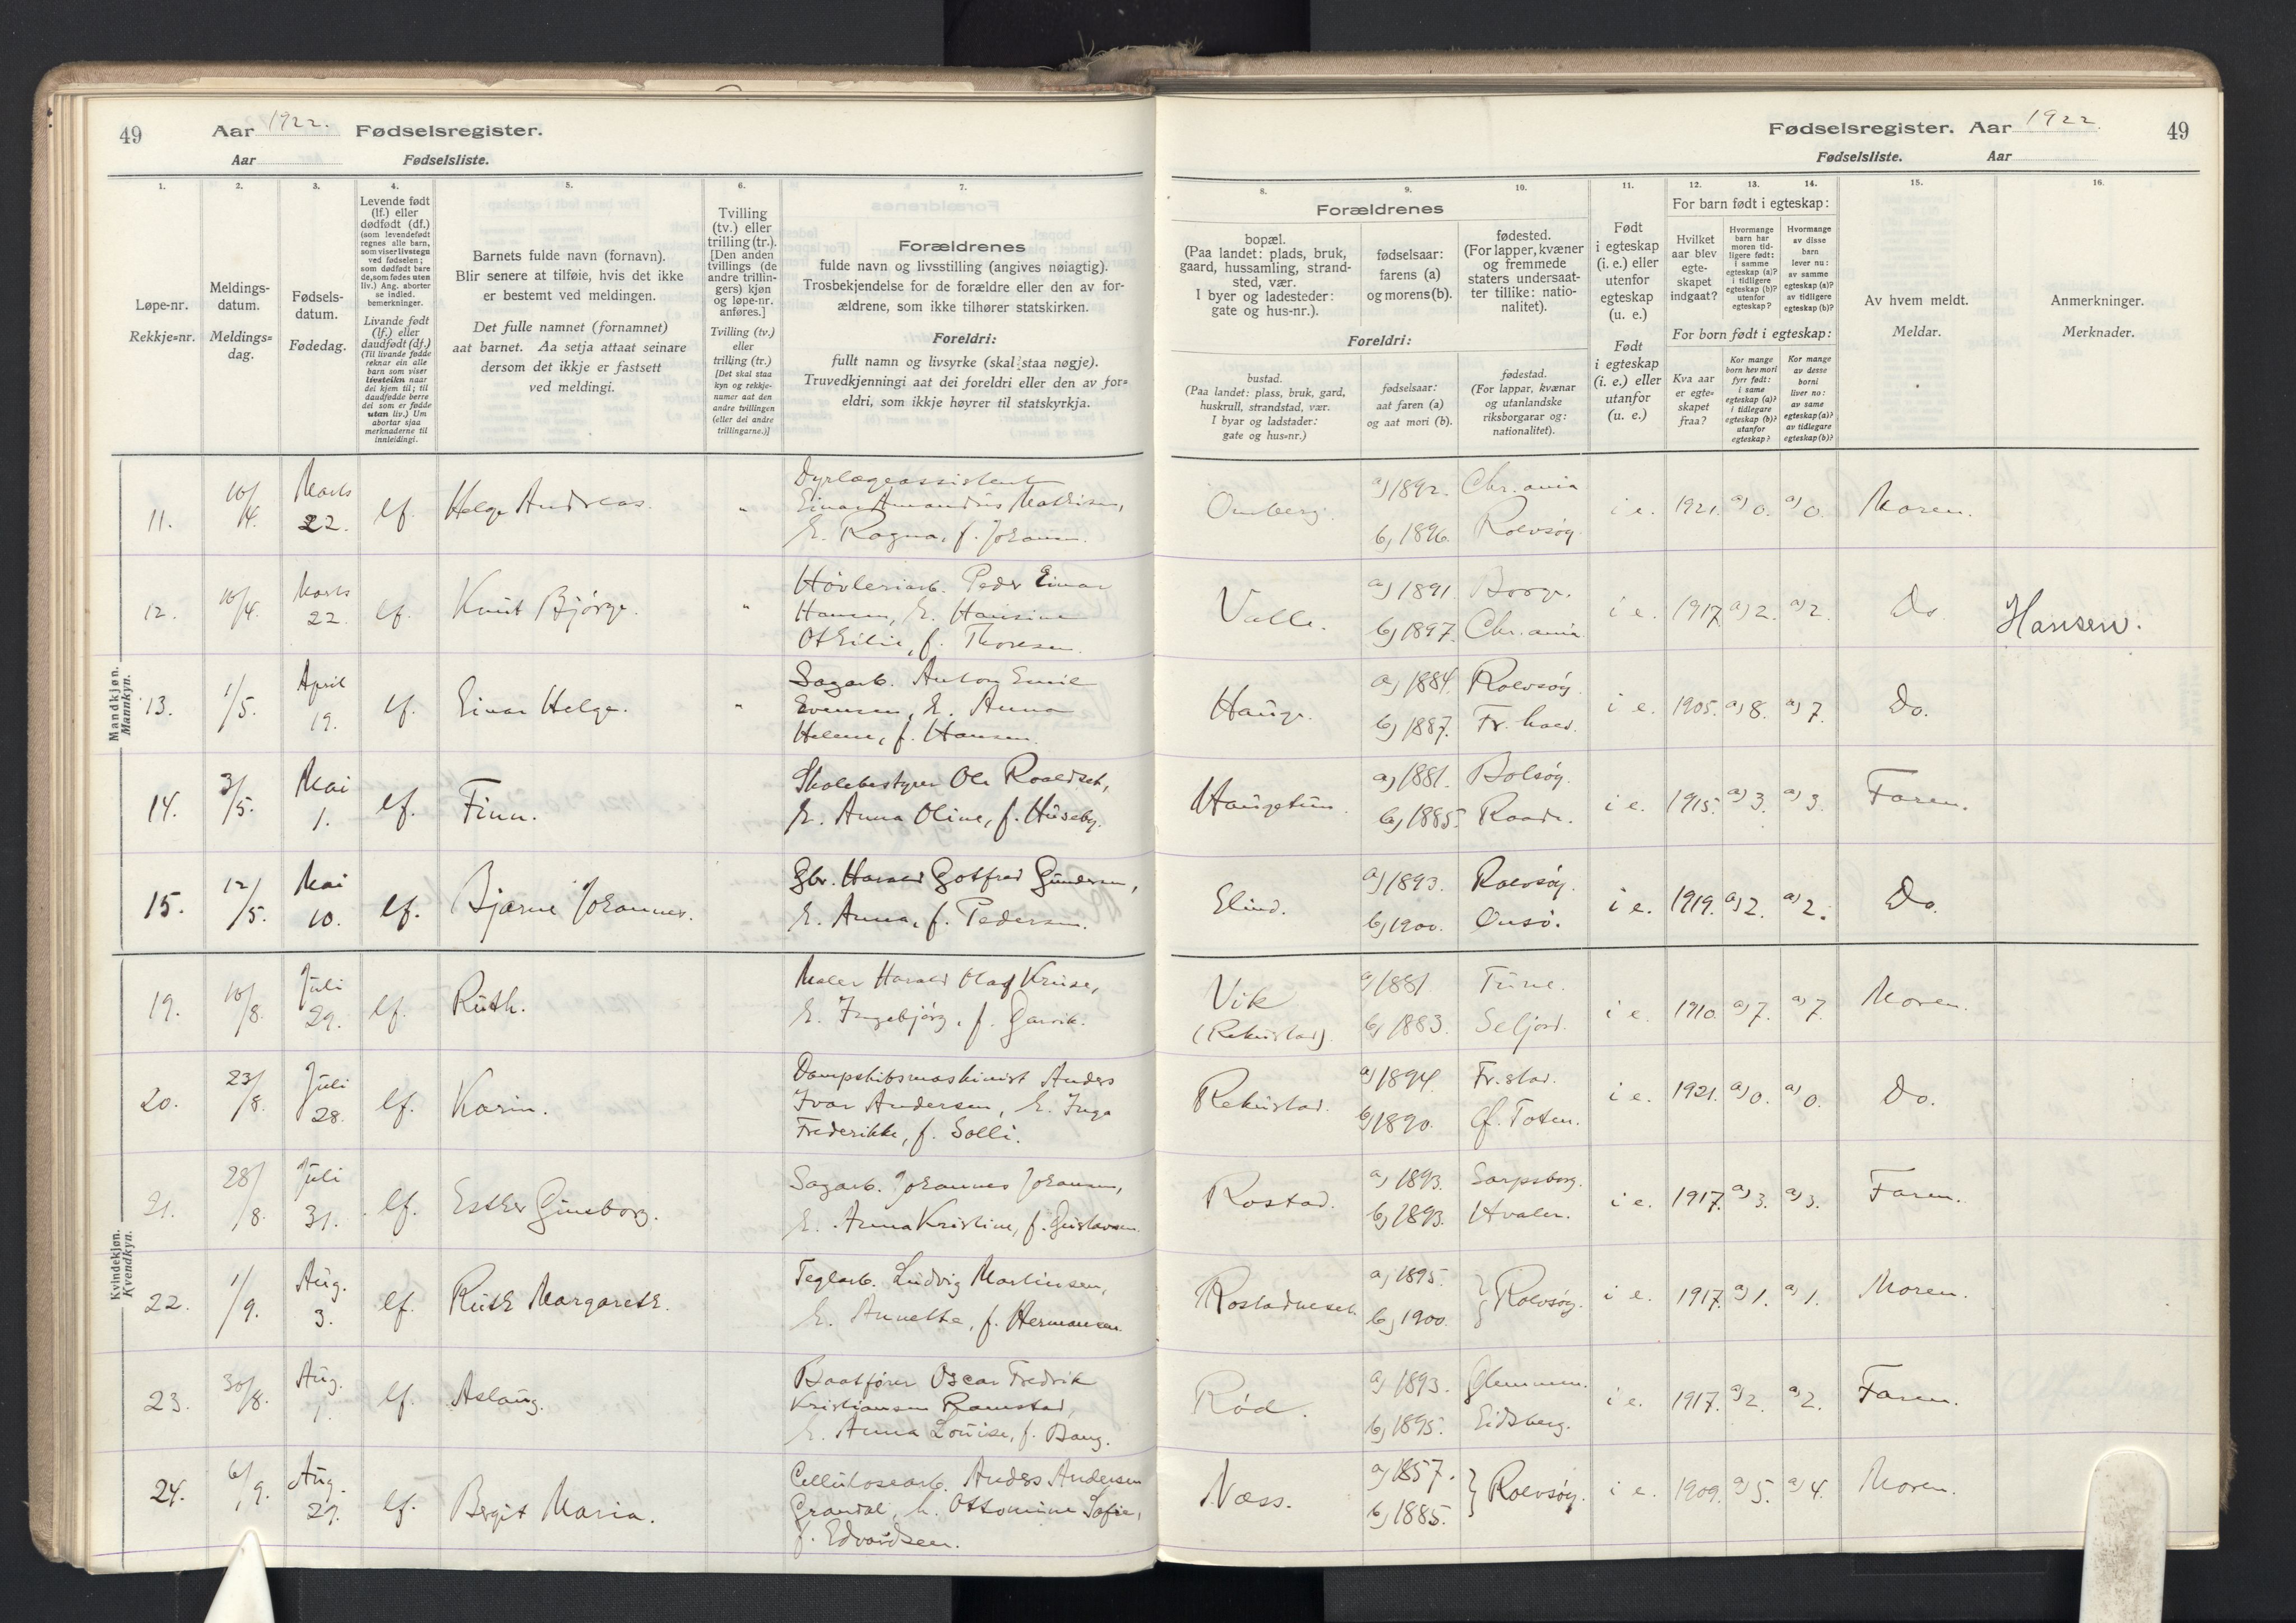 49 Aar 1922. Fødselsregister.
Aar Fødselsliste.
1. 2. 3. 4. 5. 6. 7.
Løpe-nr.
Rekkje=nr.
Meldings-
datum.
Meldings=
dag.
Fødsels-
datum.
Fødedag.
Levende født
(lf.) eller
dødfødt (df.)
(som levendefødt
regnes alle barn,
som viser livstegn
ved fødselen;
som dødfødt bare
de, som fødes uten
liv.) Ang. aborter
se indled.
bemerkninger.
Livande født
(lf.) eller
daudfødt (df.)
(Til livande fødde
reknar ein alle
barn som viser
livsteikn naar
dei kjem til; til
daudfødde berre
dei som er fødde
utan liv.) Um
abortar sjaa
merknaderne til
innleidingi.
Barnets fulde navn (fornavn).
Blir senere at tilføie, hvis det ikke
er bestemt ved meldingen.
Det fulle namnet (fornamnet)
aat barnet. Aa setja attaat seinare
dersom det ikkje er fastsett
ved meldingi.
Tvilling
(tv.) eller
trilling (tr.).
[Den anden
tvillings (de
andre trillin-
gers) kjøn
og løpe-nr.
anføres.]
Tvilling (tv.)
eller
trilling (tr.)
[Det skal staa
kyn og rekkje-
numer aat den
andre tvillingen
(eller dei andre
trillingarne.)]
Forældrenes
fulde navn og livsstilling (angives nøiagtig).
Trosbekjendelse for de forældre eller den av for-
ældrene, som ikke tilhører statskirken.
Foreldri:
fullt namn og livsyrke (skal staa nøgje).
Truvedkjenningi aat dei foreldri eller den av for=
eldri, som ikkje høyrer til statskyrkja.
Mandkjøn.
Mannkyn.
11. 10/4. Marts 22. lf. Helge Andreas. "
Dyrlægeassistent
Einar Amandus Mathisen,
h. Ragna, f. Johansen.
12. 10/4. Marts 22. lf. Knut Bjørge. "
Høvleriarb. Peder Einar
Hansen, h. Hansine
Othilie, f. Thoresen.
13. 1/5. April 19. lf. Einar Helge. "
Sagarb. Anton Emil
Evensen, h. Anna
Helene, f. Hansen.
14. 3/5. Mai 1. lf. Finn.
Skolebestyrer Ole Roaldset,
h. Anna Oline, f. Huseby.
15. 12/5. Mai 10. lf. Bjarne Johannes.
Gbr. Harald Gotfred Gundersen,
h. Anna, f. Pedersen.
Kvindekjøn.
Kvendkyn.
19. 10/8. Juli 29. lf. Ruth.
Maler Harald Olaf Kruse,
h. Ingebjørg, f. Garvik.
20. 23/8. Juli 28. lf. Karin.
Dampskibsmaskinist Anders
Ivar Andersen, h. Inga
Frederikke, f. Solli.
21. 28/8. Juli 31. lf. Esther Ginsborg.
Sagarb. Johannes Johansen,
h. Anna Kristine, f. Gustavsen.
22. 1/9. Aug. 3. lf. Ruth Margareth.
Teglarb. Ludvig Martinsen,
h. Annette, f. Hermansen.
23. 30/8. Aug. 1. lf. Aslaug.
Baatfører Oscar Fredrik
Kristiansen Ramstad,
h. Anna Louise, f. Bang.
24. 6/9. Aug. 29. lf. Birgit Maria.
Cellulosearb. Anders Andersen
Grandal, h. Ottomine Sofie,
f. Edvardsen.
Fødselsregister. Aar 1922. 49
Fødselsliste. Aar
8. 9. 10. 11. 12. 13. 14. 15. 16.
Forældrenes
bopæl.
(Paa landet: plads, bruk,
gaard, hussamling, strand-
sted, vær.
I byer og ladesteder:
gate og hus-nr.).
fødselsaar:
farens (a)
og morens (b).
fødested.
(For lapper, kvæner
og fremmede
staters undersaat-
ter tillike: natio-
nalitet).
Foreldri:
bustad.
(Paa landet: plass, bruk, gard,
huskrull, strandstad, vær.
I byar og ladstader:
gate og hus=nr.)
fødselsaar:
aat faren (a)
og aat mori (b).
fødestad.
(For lappar, kvænar
og utanlandske
riksborgarar og:
nationalitet).
Født
i egteskap
(i. e.) eller
utenfor
egteskap
(u. e.)
Født
i egteskap
(i. e.) eller
utanfor
(u. e.)
For barn født i egteskap:
Hvilket
aar blev
egte-
skapet
indgaat?
Hvormange
barn har
moren tid-
ligere født:
i samme
egteskap (a)?
i tidligere
egteskap (b)?
utenfor
egteskap?
Hvormange
av disse
barn
lever nu:
av samme
egteskap (a)?
av tidligere
egteskap (b)?
For born født i egteskap:
Kva aar
er egte=
skapet
fraa?
Kor mange
born hev mori
fyrr født:
i same
egteskap (a)?
i tidlegare
egteskap (b)?
utanfor
egteskap?
Kor mange
av desse
borni
liver no:
av same
egteskap (a)?
av tidlegare
egteskap (b)?
Av hvem meldt.
Meldar.
Anmerkninger.
Merknader.
Omberg. a) 1892. Chr.ania i e. 1921. a) 0. a) 0. Moren.
b) 1896. Rolvsøy.
Valle. a) 1891. Borge. i e. 1917. a) 2. a) 2. Do Hansen.
b) 1897. Chr.ania
Hauge. a) 1884. Rolvsøy. i e. 1905. a) 8. a) 7. Do.
b) 1887. Fr.hald.
Haugetun. a) 1881. Bolsøy. i e. 1915. a) 3. a) 3. Faren.
b) 1885. Raade.
Elind. a) 1893. Rolvsøy. i e. 1919. a) 2. a) 2. Do.
b) 1900. Onsø.
Vik a) 1881. Tune. i e. 1910. a) 7. a) 7. Moren.
(Rekustad). b) 1883. Seljord.
Rekustad. a) 1894. Fr.stad. i e. 1921. a) 0. a) 0. Do.
b) 1890. Ø. Toten.
Rostad. a) 1893. Sarpsborg. i e. 1917. a) 3. a) 3. Faren.
b) 1893. Hvaler.
Rostadneset. a) 1895. } Rolvsøy. i e. 1917. a) 1. a) 1. Moren.
b) 1900.
Rød. a) 1893. Glemmen. i e. 1917. a) 2. a) 2. Faren.
b) 1895. Eidsberg.
Næss. a) 1857. } Rolvsøy. i e. 1909. a) 5. a) 4. Moren.
b) 1885.